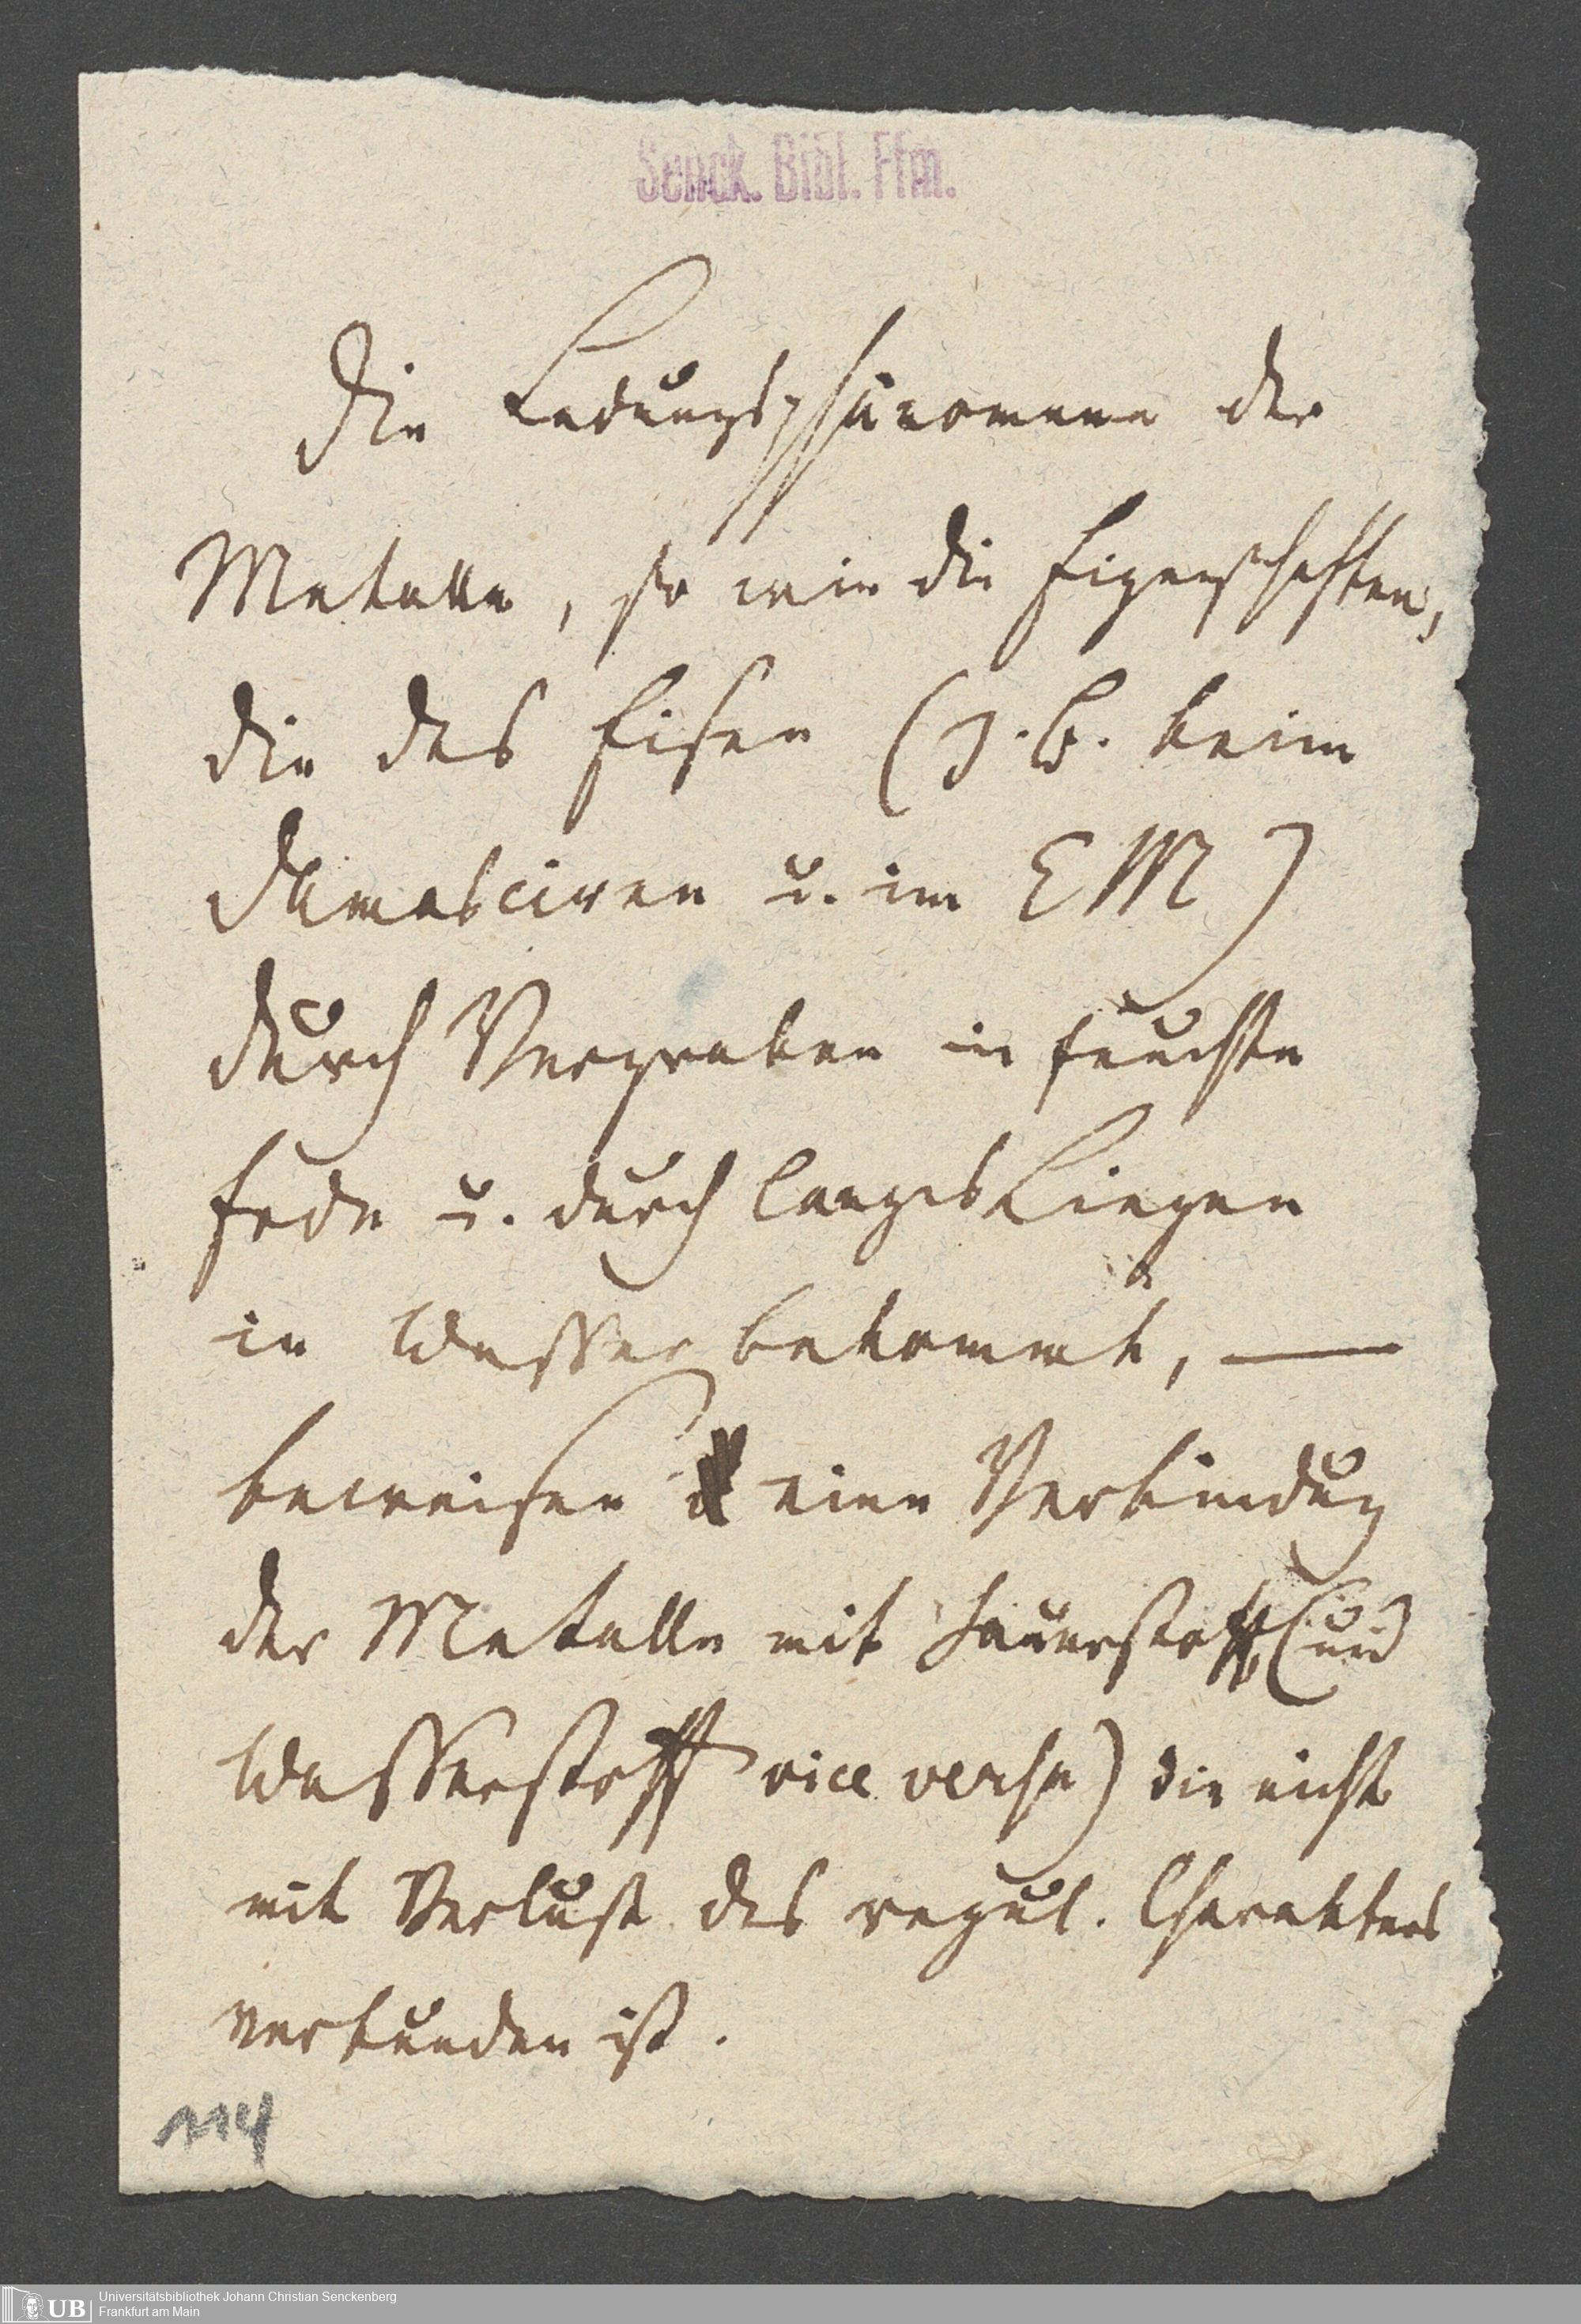 Senck. Bibl. Ffm.
Die Ladungsphänomene der
Metalle, so wie die Eigenschaften,
die das Eisen (z. B. beim
Damasciren u. im EM)
durch Vergraben in feuchte
Erde u. durch langes Liegen
in Wasser bekommt, —
beweisen eine Verbindung
der Metalle mit Sauerstoff, (und
Wasserstoff vice versa) die nicht
mit Verlust des regul. Charakters
verbunden ist.
114
UB
Universitätsbibliothek Johann Christian Senckenberg
Frankfurt am Main